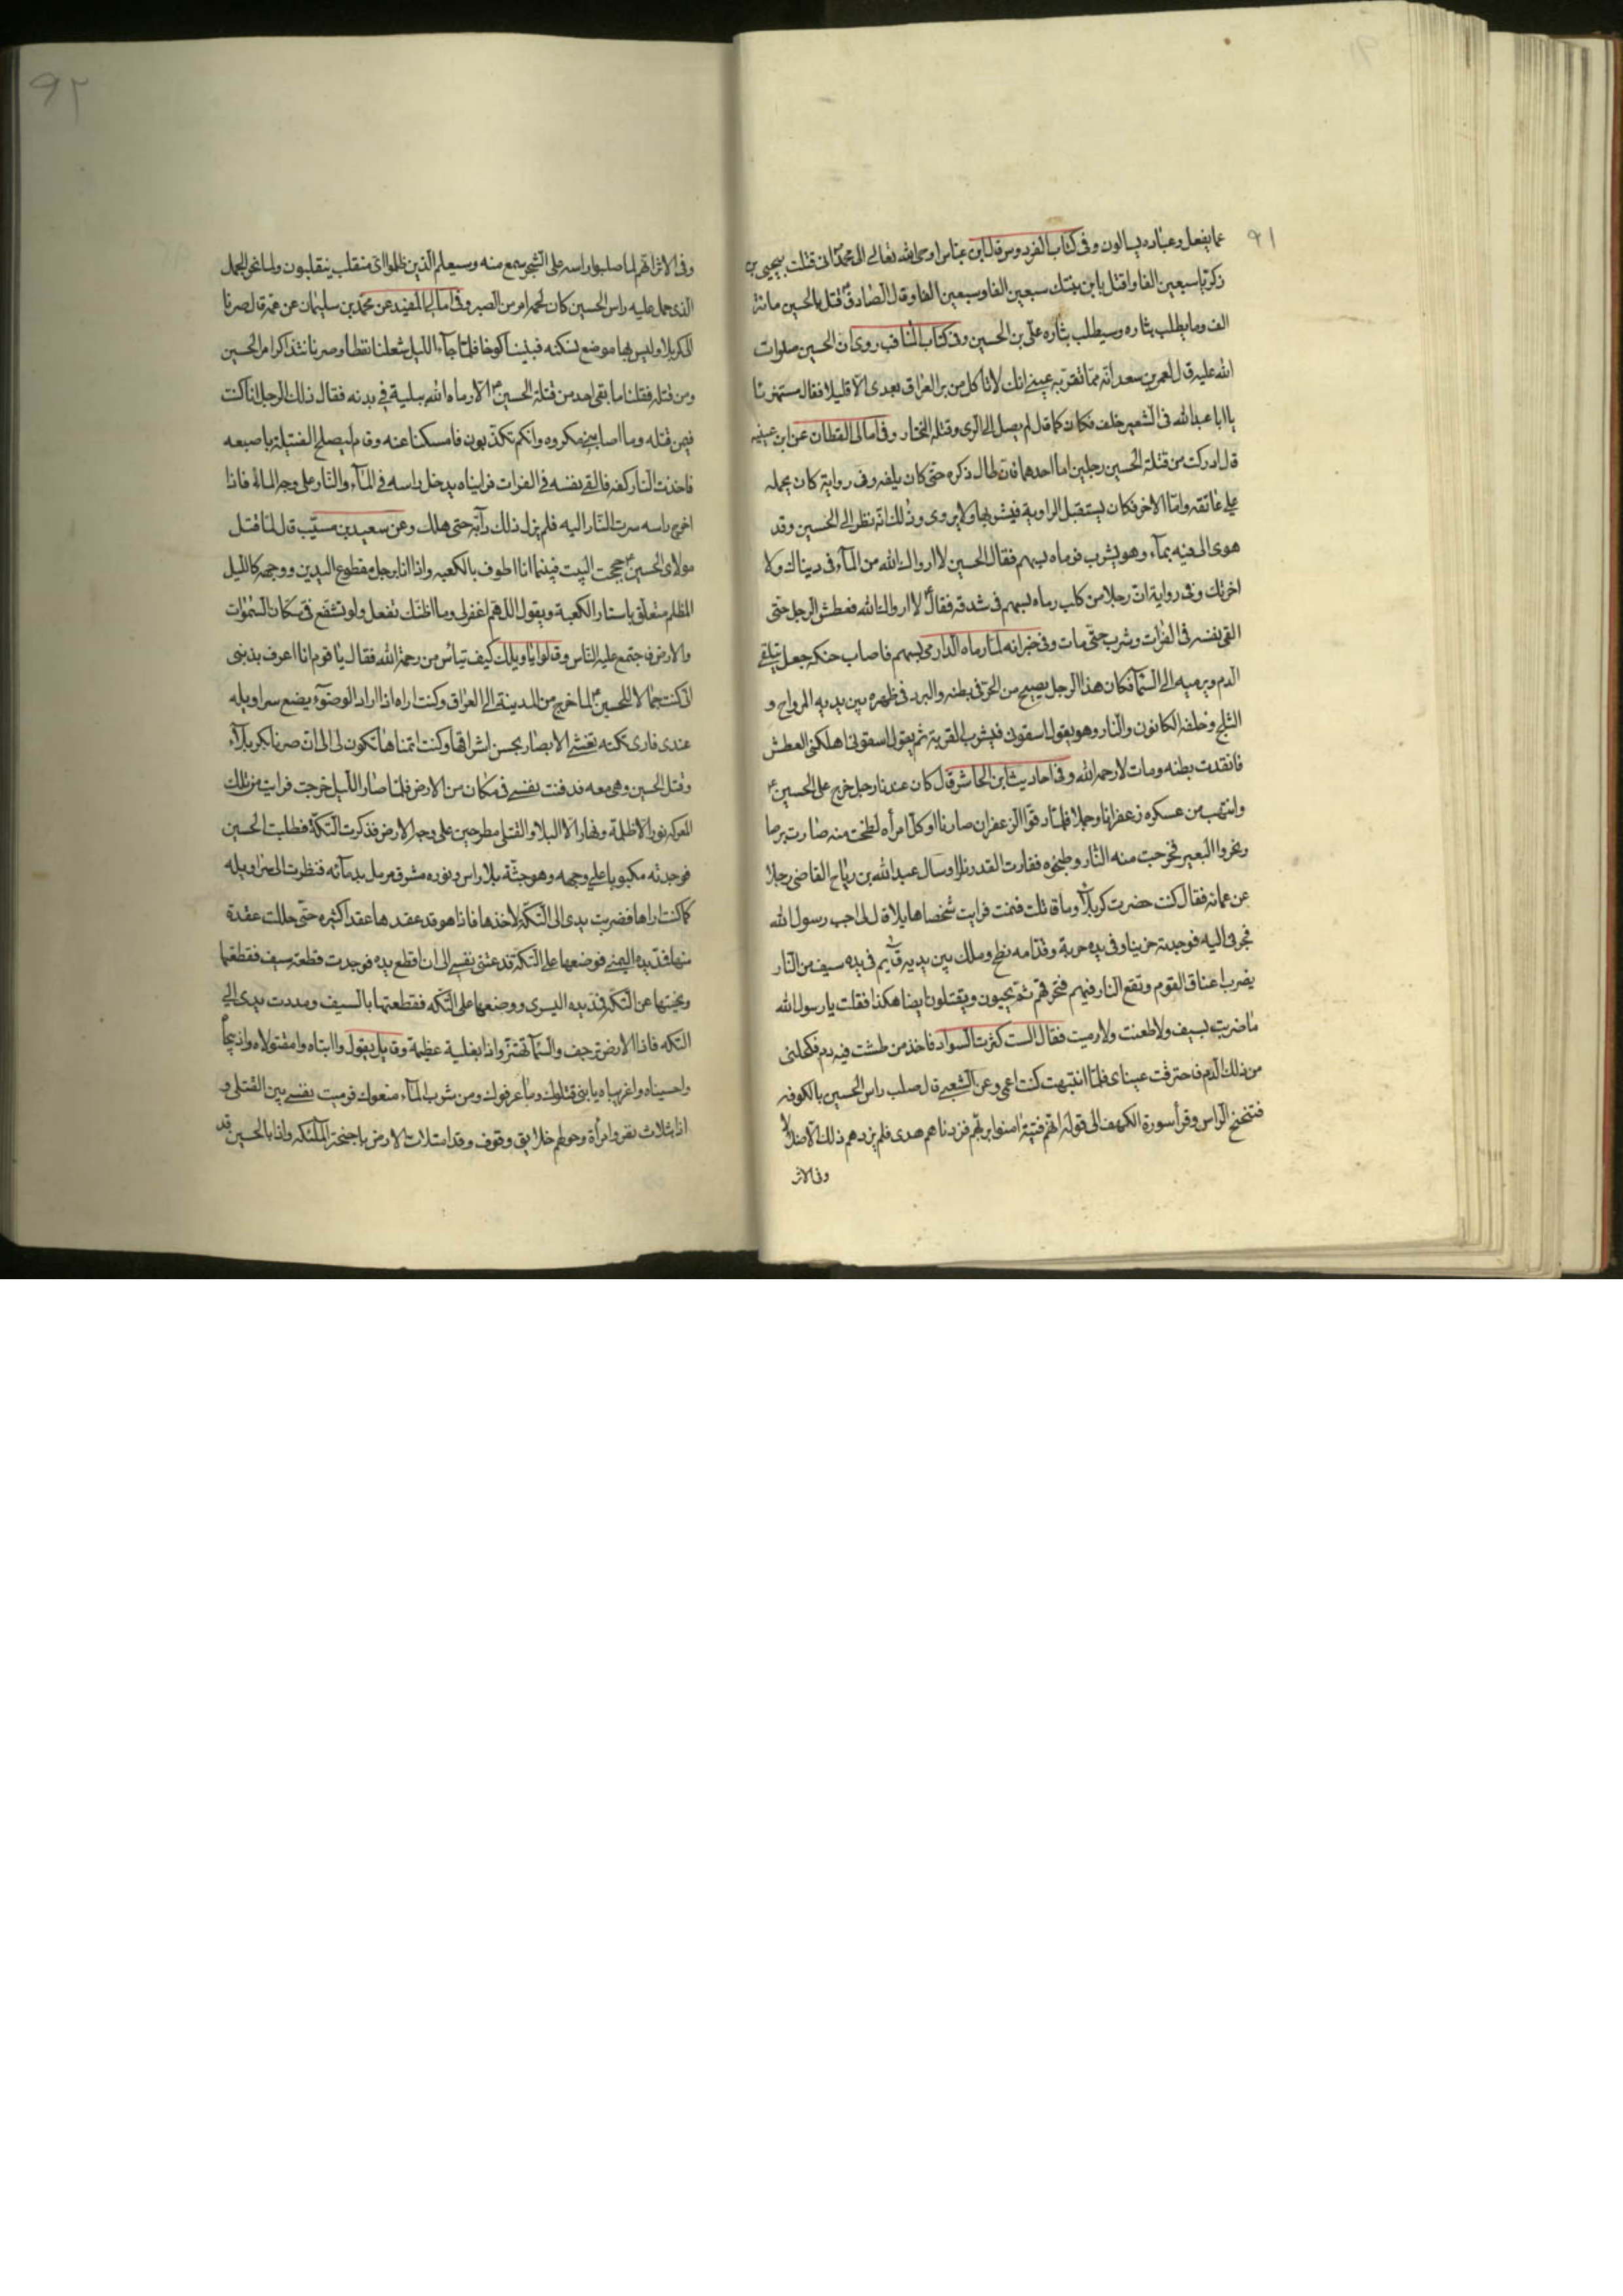 ٩١
عما يفعل وعباده يسالون وفى كتاب الفردوس قال ابن عباس اوحى الله تعالى الى محمد انى قتلت بيحيى بن
زكريا سبعين الفا واقتل بابن بنتك سبعين الفا وسبعين الفا وقال الصادق قتل بالحسين مائة
الف وما يطلب بثاره وسيطلب بثاره على بن الحسين وفى كتاب المناقب روى ان الحسين صلوات
الله عليه قال لعمر بن سعد انه مما تقر به عينى انك لا تاكل من بر العراق بعدى الا قليلا فقال مستهزئا
يا ابا عبد الله فى الشعير خلف فكان كما قال لم يصل الى الرى وقتله المختار وفى امالى القطان عن ابن عيينه
قال ادركت من قتلة الحسين رجلين اما احدهما فانه طال ذكره حتى كان يلفه وفى رواية كان يحمله
على عاتقه واما الاخر فكان يستقبل الراوية فيشربها ولا يروى وذلك انه نظر الى الحسين وقد
هوى الى فيه بماء وهو يشرب فرماه بسهم فقال الحسين لا ارواك الله من الماء فى دنياك ولا
اخرتك وفى رواية ان رجلا من كلب رماه بسهم فى شدقه فقال لا ارواك الله فعطش الرجل حتى
القى نفسه فى الفرات وشرب حتى مات وفى خبر انه لما رماه الدارمى بسهم فاصاب حنكه جعل يتلقى
الدم ويرميه الى السماء فكان هذا الرجل يصيح من الحر فى بطنه والبرد فى ظهره بين يديه المرواح و
الثلج وخلفه الكانون والنار وهو يقول اسقونى فيشرب القربة ثم يقول اسقونى اهلكنى العطش
فانقدت بطنه ومات لا رحمه الله وفى احاديث ابن الحاشر قال كان عندنا رجل خرج على الحسين
وانتهب من عسكره زعفرانا وجملا فلما دقوا الزعفران صار نارا وكل امراه لطخت منه صارت برصا
ونحروا البعير فخرجت منه النار وطبخوه ففارت القدر نارا وسال عبد الله بن رباح القاضى رجلا
عن عمائه فقال كنت حضرت كربلا وما قاتلت فنمت فرايت شخصا هايلا قال لى اجب رسول الله
فجرنى اليه فوجدته حزينا وفى يده حربة وقدامه نطع وملك بين يديه قايم فى يده سيف من النار
يضرب اعناق القوم وتقع النار فيهم فتحرقهم ثم يحيون ويقتلون ايضا هكذا فقلت يا رسول الله
ما ضربت بسيف ولا طعنت ولا رميت فقال الست كثرت السواد فاخذ من طشت فيه دم فكحلنى
من ذلك الدم فاحترقت عيناى فلما انتبهت كنت اعمى وعن الشعبى قال صلب راس الحسين بالكوفه
فتنحنح الراس وقرأ سورة الكهف الى قوله انهم فتية امنوا بربهم فزدناهم هدى فلم يزدهم ذلك الا ضلالا
وفى الاثر
٩٢
وفى الاثر انهم لما صلبوا راسه على الشجر سمع منه وسيعلم الذين ظلموا اى منقلب ينقلبون ولما نحر الجمل
الذى حمل عليه راس الحسين كان لحمه امر من الصبر وفى امالى المفيد عن محمد بن سليمان عن عمه قال صرنا
الى كربلا وليس بها موضع نسكنه فبنينا كوخا فلما جاء الليل شعلنا نفطا وصرنا نتذاكر امر الحسين
ومن قتله فقلنا ما بقى احد من قتلة الحسين الا رماه الله ببلية فى بدنه فقال ذلك الرجل انا كنت
فيمن قتله وما اصابنى مكروه وانكم تكذبون فامسكنا عنه وقام ليصلح الفتيلة باصبعه
فاخذت النار كفه فالقى نفسه فى الفرات فرايناه يدخل راسه فى الماء والنار على وجه الماء فاذا
اخرج راسه سرت النار اليه فلم يزل ذلك دابه حتى هلك وعن سعيد بن مسيب قال لما قتل
مولاى الحسين حججت البيت فبينما انا اطوف بالكعبه واذا انا برجل مقطوع اليدين ووجهه كالليل
المظلم متعلق باستار الكعبة ويقول اللهم اغفر لى وما اظنك تفعل ولو تشفع فى سكان السموات
والارض فاجتمع عليه الناس وقالوا يا ويلك كيف تياس من رحمة الله فقال يا قوم انا اعرف بذنبى
انى كنت جمالا للحسين لما خرج من المدينة الى العراق وكنت اراه اذا اراد الوضوء يضع سراويله
عندى فارى تكته تغشى الابصار بحسن اشراقها وكنت اتمناها تكون لى الى ان صرنا بكربلاء
وقتل الحسين وهى معه فدفنت نفسى فى مكان من الارض فلما صار الليل خرجت فرايت من تلك
المعركه نورا لا ظلمة ونهارا لا ليلا والقتلى مطرحين على وجه الارض فذكرت التكة فطلبت الحسين
فوجدته مكبوبا على وجهه وهو جثة بلا راس ونوره مشرق مرمل بدمائه فنظرت الى سراويله
كما كنت اراها فضربت بيدى الى التكة لاخذها فاذا هو قد عقدها عقدا كثيره حتى حللت عقدة
منها فمد يده اليمنى فوضعها على التكة فدعتنى نفسى الى ان اقطع يده فوجدت قطعة سيف فقطعتها
ونحيتها عن التكة فمد يده اليسرى ووضعها على التكه فقطعتها بالسيف ومددت يدى الى
التكه فاذا الارض ترجف والسماء تهتز واذا بغلبة عظيمة وقايل يقول وا ابناه وا مقتولاه وا ذبيحا
وا حسيناه وا غريباه يا بنى قتلوك وما عرفوك ومن شرب الماء منعوك فرميت نفسى بين القتلى و
اذا بثلاث نفر وامرأة وحولهم خلايق وقوف وقد امتلات الارض باجنحة الملئكه واذا بالحسين قد